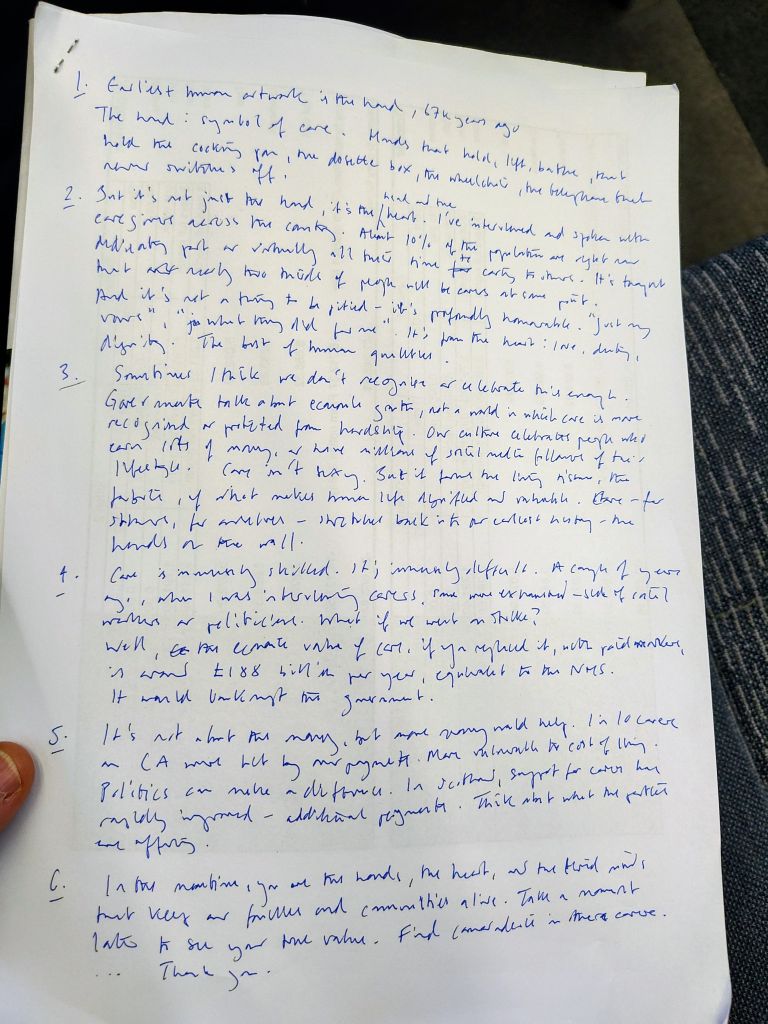 1. Earliest human artwork is the hand, 67k years ago
The hand: symbol of care. Hands that hold, lift, bathe, that
hold the cooking pan, the dosette box, the wheelchair, the telephone that
never switches off.
2. But it's not just the hand, it's the / mind and the heart. I've interviewed and spoken with
caregivers across the country. About 10% of the population are right now
dedicating part or virtually all their time to caring for others. It's thought
that nearly two thirds of people will be carers at some point.
And it's not a thing to be pitied – it's profoundly honourable. "Just my
vows", "just what they did for me". It's from the heart: love, duty,
dignity. The best of human qualities.
3. Sometimes I think we don't recognise or celebrate this enough.
Governments talk about economic growth, not a world in which care is more
recognised or protected from hardship. Our culture celebrates people who
earn lots of money, or have millions of social media followers of their
lifestyle. Care isn't sexy. But it forms the living tissue, the
fabric, of what makes human life dignified and valuable. Care – for
others, for ourselves – stretches back into our earliest history – the
hands on the wall.
4. Care is immensely skilled. It's immensely difficult. A couple of years
ago, when I was interviewing carers, some were exhausted – sick of social
workers or politicians. What if we went on strike?
Well, the economic value of care, if you replaced it with paid workers,
is around £188 billion per year, equivalent to the NHS.
It would bankrupt the government.
5. It's not about the money, but more money would help. 1 in 10 carers
on CA were hit by overpayments. More vulnerable to cost of living.
Politics can make a difference. In Scotland, support for carers has
rapidly improved – additional payments. Think about what the parties
are offering.
6. In the meantime, you are the hands, the heart, and the minds
that keep our families and communities alive. Take a moment
later to see your true value. Find camaraderie in other carers.
... Thank you.